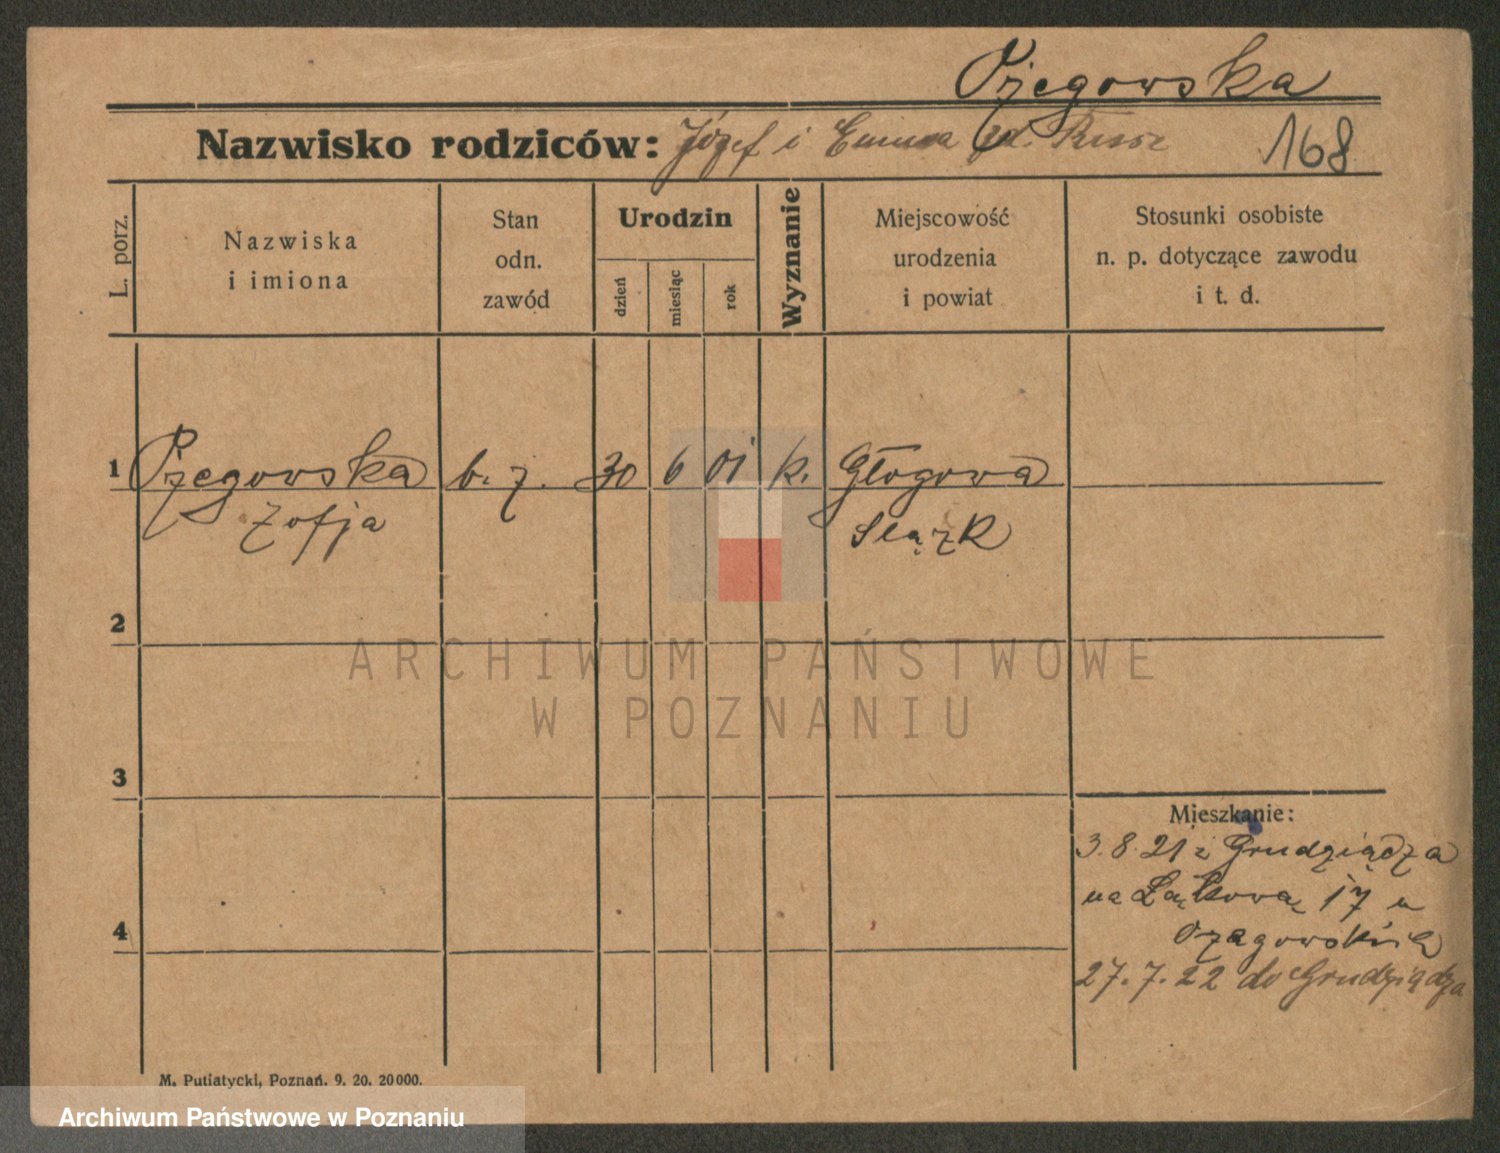 Ożegowska
Nazwisko rodziców: Józef i Emma
168
L. porz.
Nazwiska
i imiona
Stan
odn.
zawód
Urodzin
dzień
miesiąc
rok
Wyznanie
Miejscowość
urodzenia
i powiat
Stosunki osobiste
n. p. dotyczące zawodu
i t. d.
1 Ożegowska b. z. 30 6 01 k. Głogowa
Zofja Slązk
2
3
4
Mieszkanie:
3.8.21 z Grudziądza
na Łąkową 17 u
27.7.22 do Grudziądza
M. Putiatycki, Poznań. 9. 20. 20000.
ARCHIWUM PAŃSTWOWE
W POZNANIU
Archiwum Państwowe w Poznaniu